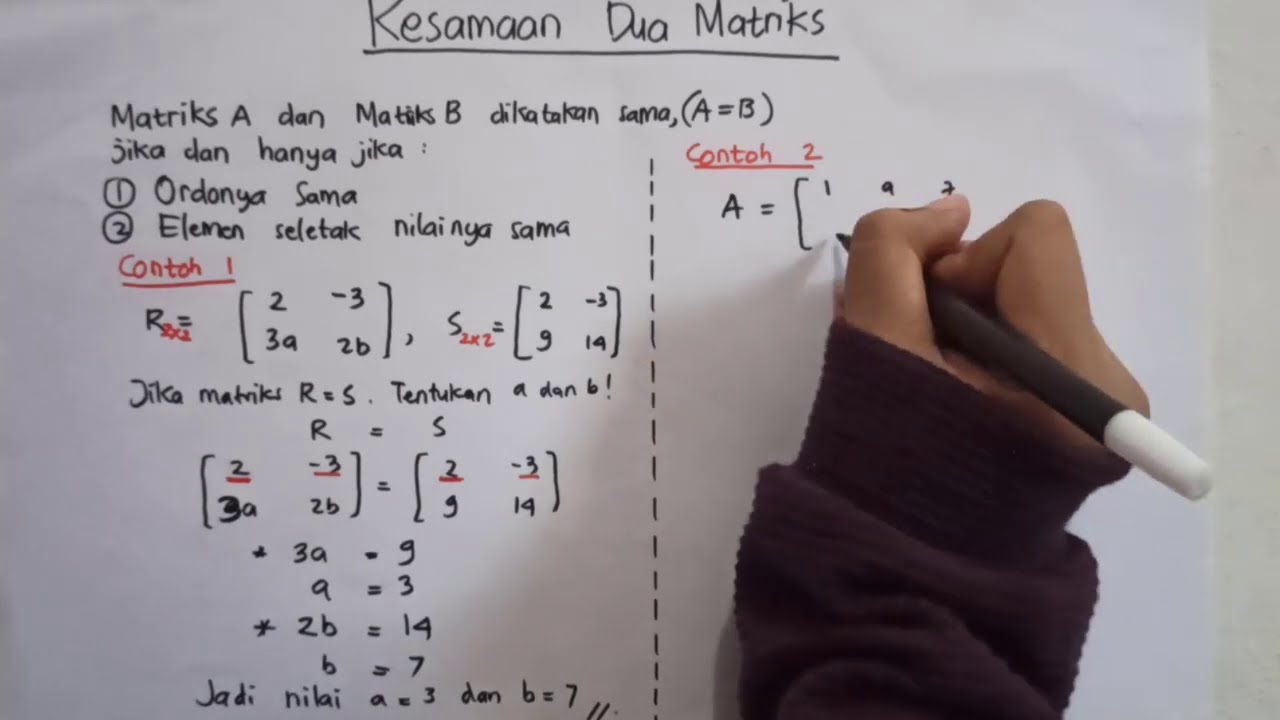 Kesamaan Dua Matriks
Matriks A dan Matiks B dikatakan sama, (A = B)
jika dan hanya jika :
① Ordonya Sama
② Elemen seletak nilainya sama
Contoh 1
R2x2 = [ 2 -3
3a 2b ] , S2x2 = [ 2 -3
9 14 ]
Jika matriks R = S . Tentukan a dan b !
R = S
[ 2 -3
3a 2b ] = [ 2 -3
9 14 ]
* 3a = 9
a = 3
* 2b = 14
b = 7
Jadi nilai a = 3 dan b = 7 //.
Contoh 2
A = [ 1 a